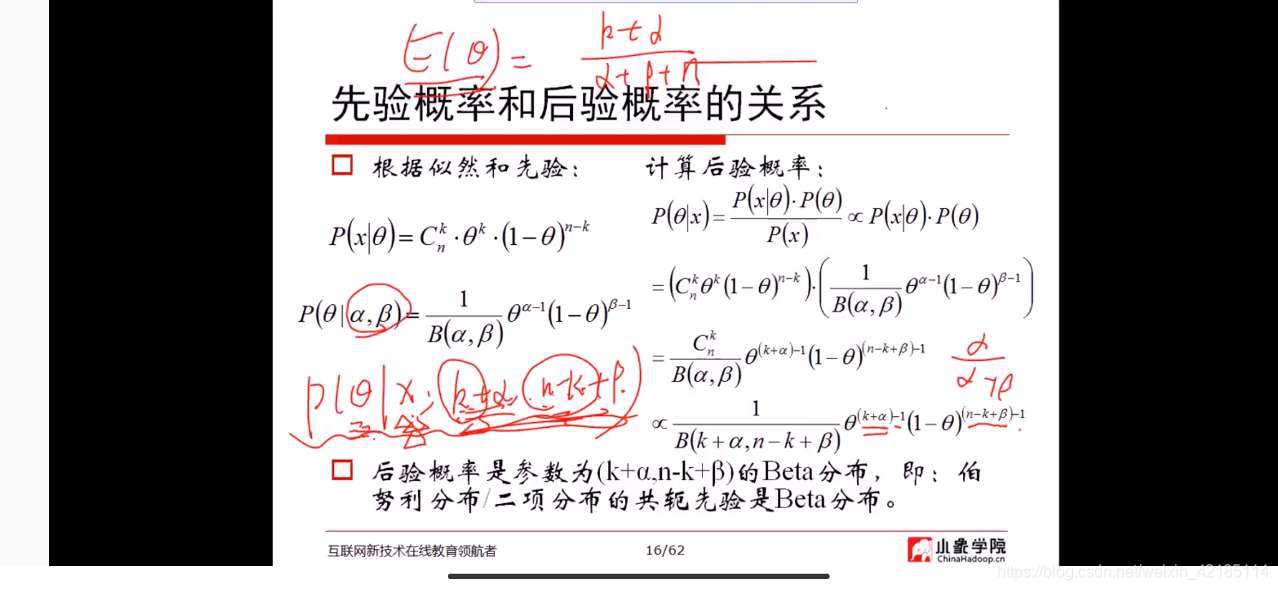 E(θ) = (k+α)/(α+β+n)
先验概率和后验概率的关系
根据似然和先验：
P(x|θ) = C_n^k · θ^k · (1-θ)^{n-k}
P(θ|α,β) = 1/B(α,β) θ^{α-1}(1-θ)^{β-1}
p(θ|x; k+α, n-k+β)
计算后验概率：
P(θ|x) = P(x|θ)·P(θ)/P(x) ∝ P(x|θ)·P(θ)
= (C_n^k θ^k (1-θ)^{n-k})·(1/B(α,β) θ^{α-1}(1-θ)^{β-1})
= C_n^k/B(α,β) θ^{(k+α)-1}(1-θ)^{(n-k+β)-1}
α/(α+β)
∝ 1/B(k+α,n-k+β) θ^{(k+α)-1}(1-θ)^{(n-k+β)-1}
后验概率是参数为(k+α,n-k+β)的Beta分布，即：伯
努利分布/二项分布的共轭先验是Beta分布。
互联网新技术在线教育领航者
16/62
小象学院
ChinaHadoop.cn
https://blog.csdn.net/weixin_42185114